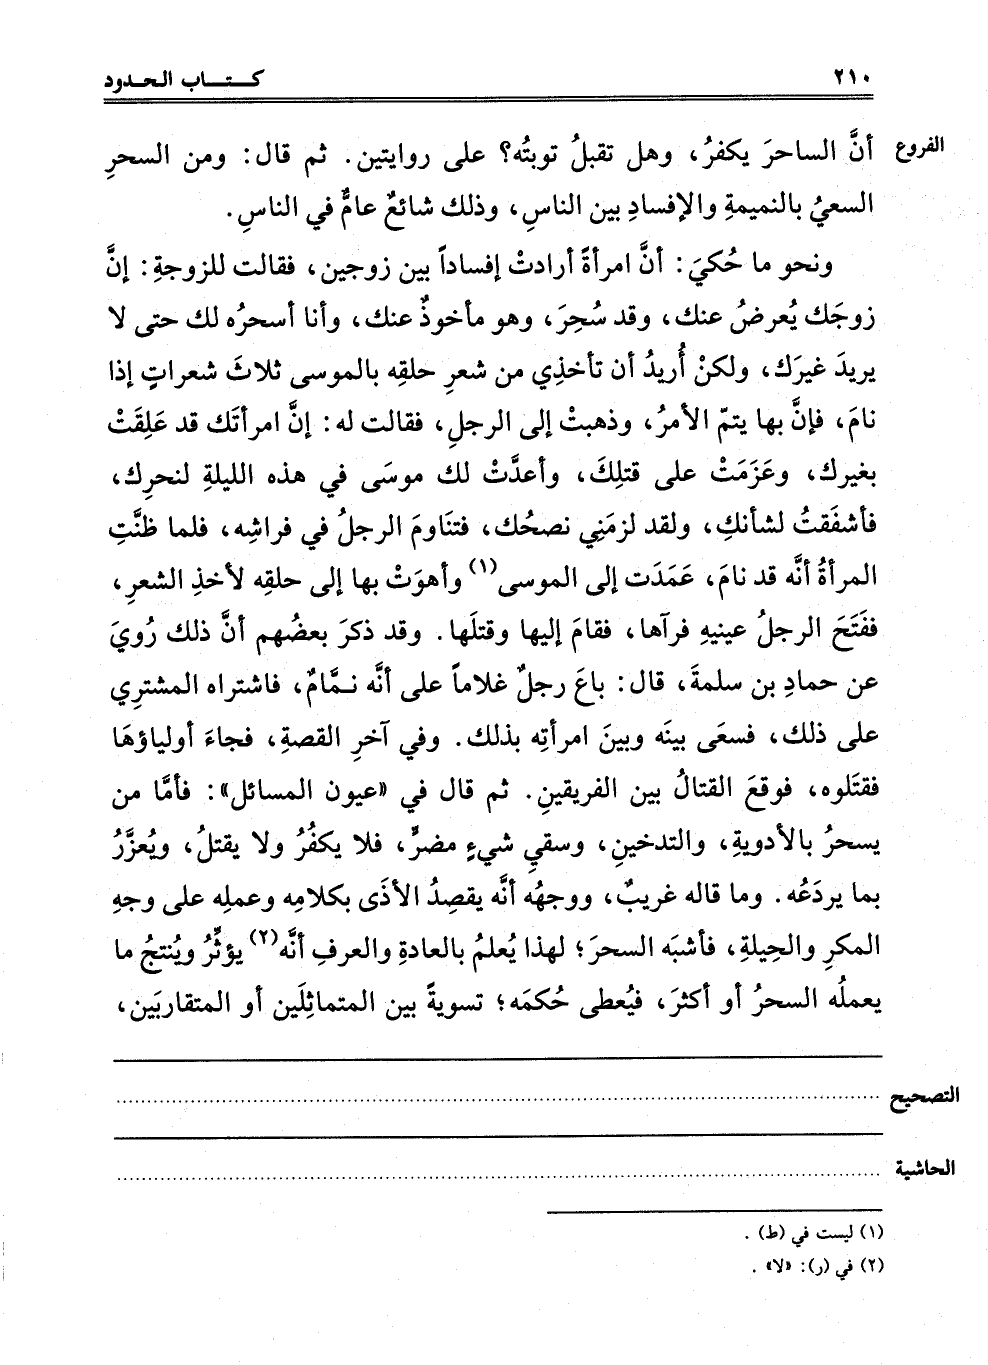 ٢١٠
كـتـــاب الـحـدود
الفروع
أنَّ الساحرَ يكفرُ، وهل تقبلُ توبتُه؟ على روايتين. ثم قال: ومن السحرِ
السعيُ بالنميمةِ والإفسادِ بين الناسِ، وذلك شائعٌ عامٌّ في الناسِ.
ونحو ما حُكيَ: أنَّ امرأةً أرادتْ إفساداً بين زوجين، فقالت للزوجةِ: إنَّ
زوجَك يُعرضُ عنك، وقد سُحِرَ، وهو مأخوذٌ عنك، وأنا أسحرُه لك حتى لا
يريدَ غيرَك، ولكنْ أُريدُ أن تأخذِي من شعرِ حلقِه بالموسى ثلاثَ شعراتٍ إذا
نامَ، فإنَّ بها يتمّ الأمرُ، وذهبتْ إلى الرجلِ، فقالت له: إنَّ امرأتَك قد عَلِقَتْ
بغيرك، وعَزَمَتْ على قتلِكَ، وأعدَّتْ لك موسَى في هذه الليلةِ لنحرِك،
فأشفَقتُ لشأنكِ، ولقد لزمَنِي نصحُك، فتنَاومَ الرجلُ في فراشِه، فلما ظنَّتِ
المرأةُ أنَّه قد نامَ، عَمَدَت إلى الموسى(١) وأهوَتْ بها إلى حلقِه لأخذِ الشعرِ،
ففَتَحَ الرجلُ عينيهِ فرآها، فقامَ إليها وقتلَها. وقد ذكرَ بعضُهم أنَّ ذلك رُويَ
عن حمادِ بن سلمةَ، قال: باعَ رجلٌ غلاماً على أنَّه نـمَّامٌ، فاشتراه المشترِي
على ذلك، فسعَى بينَه وبينَ امرأتِه بذلك. وفي آخرِ القصةِ، فجاءَ أولياؤهَا
فقتَلوه، فوقعَ القتالُ بين الفريقينِ. ثم قال في «عيون المسائل»: فأمَّا من
يسحرُ بالأدويةِ، والتدخينِ، وسقيِ شيءٍ مضرٍّ، فلا يكفُرُ ولا يقتلُ، ويُعزَّرُ
بما يردَعُه. وما قاله غريبٌ، ووجهُه أنَّه يقصِدُ الأذَى بكلامِه وعملِه على وجهِ
المكرِ والحِيلةِ، فأشبَه السحرَ؛ لهذا يُعلمُ بالعادةِ والعرفِ أنَّه(٢) يؤثِّرُ ويُنتجُ ما
يعملُه السحرُ أو أكثرَ، فيُعطى حُكمَه؛ تسويةً بين المتماثِلَين أو المتقاربَين،
التصحيح
الحاشية
(١) ليست في (ط) .
(٢) في (ر): «لا» .